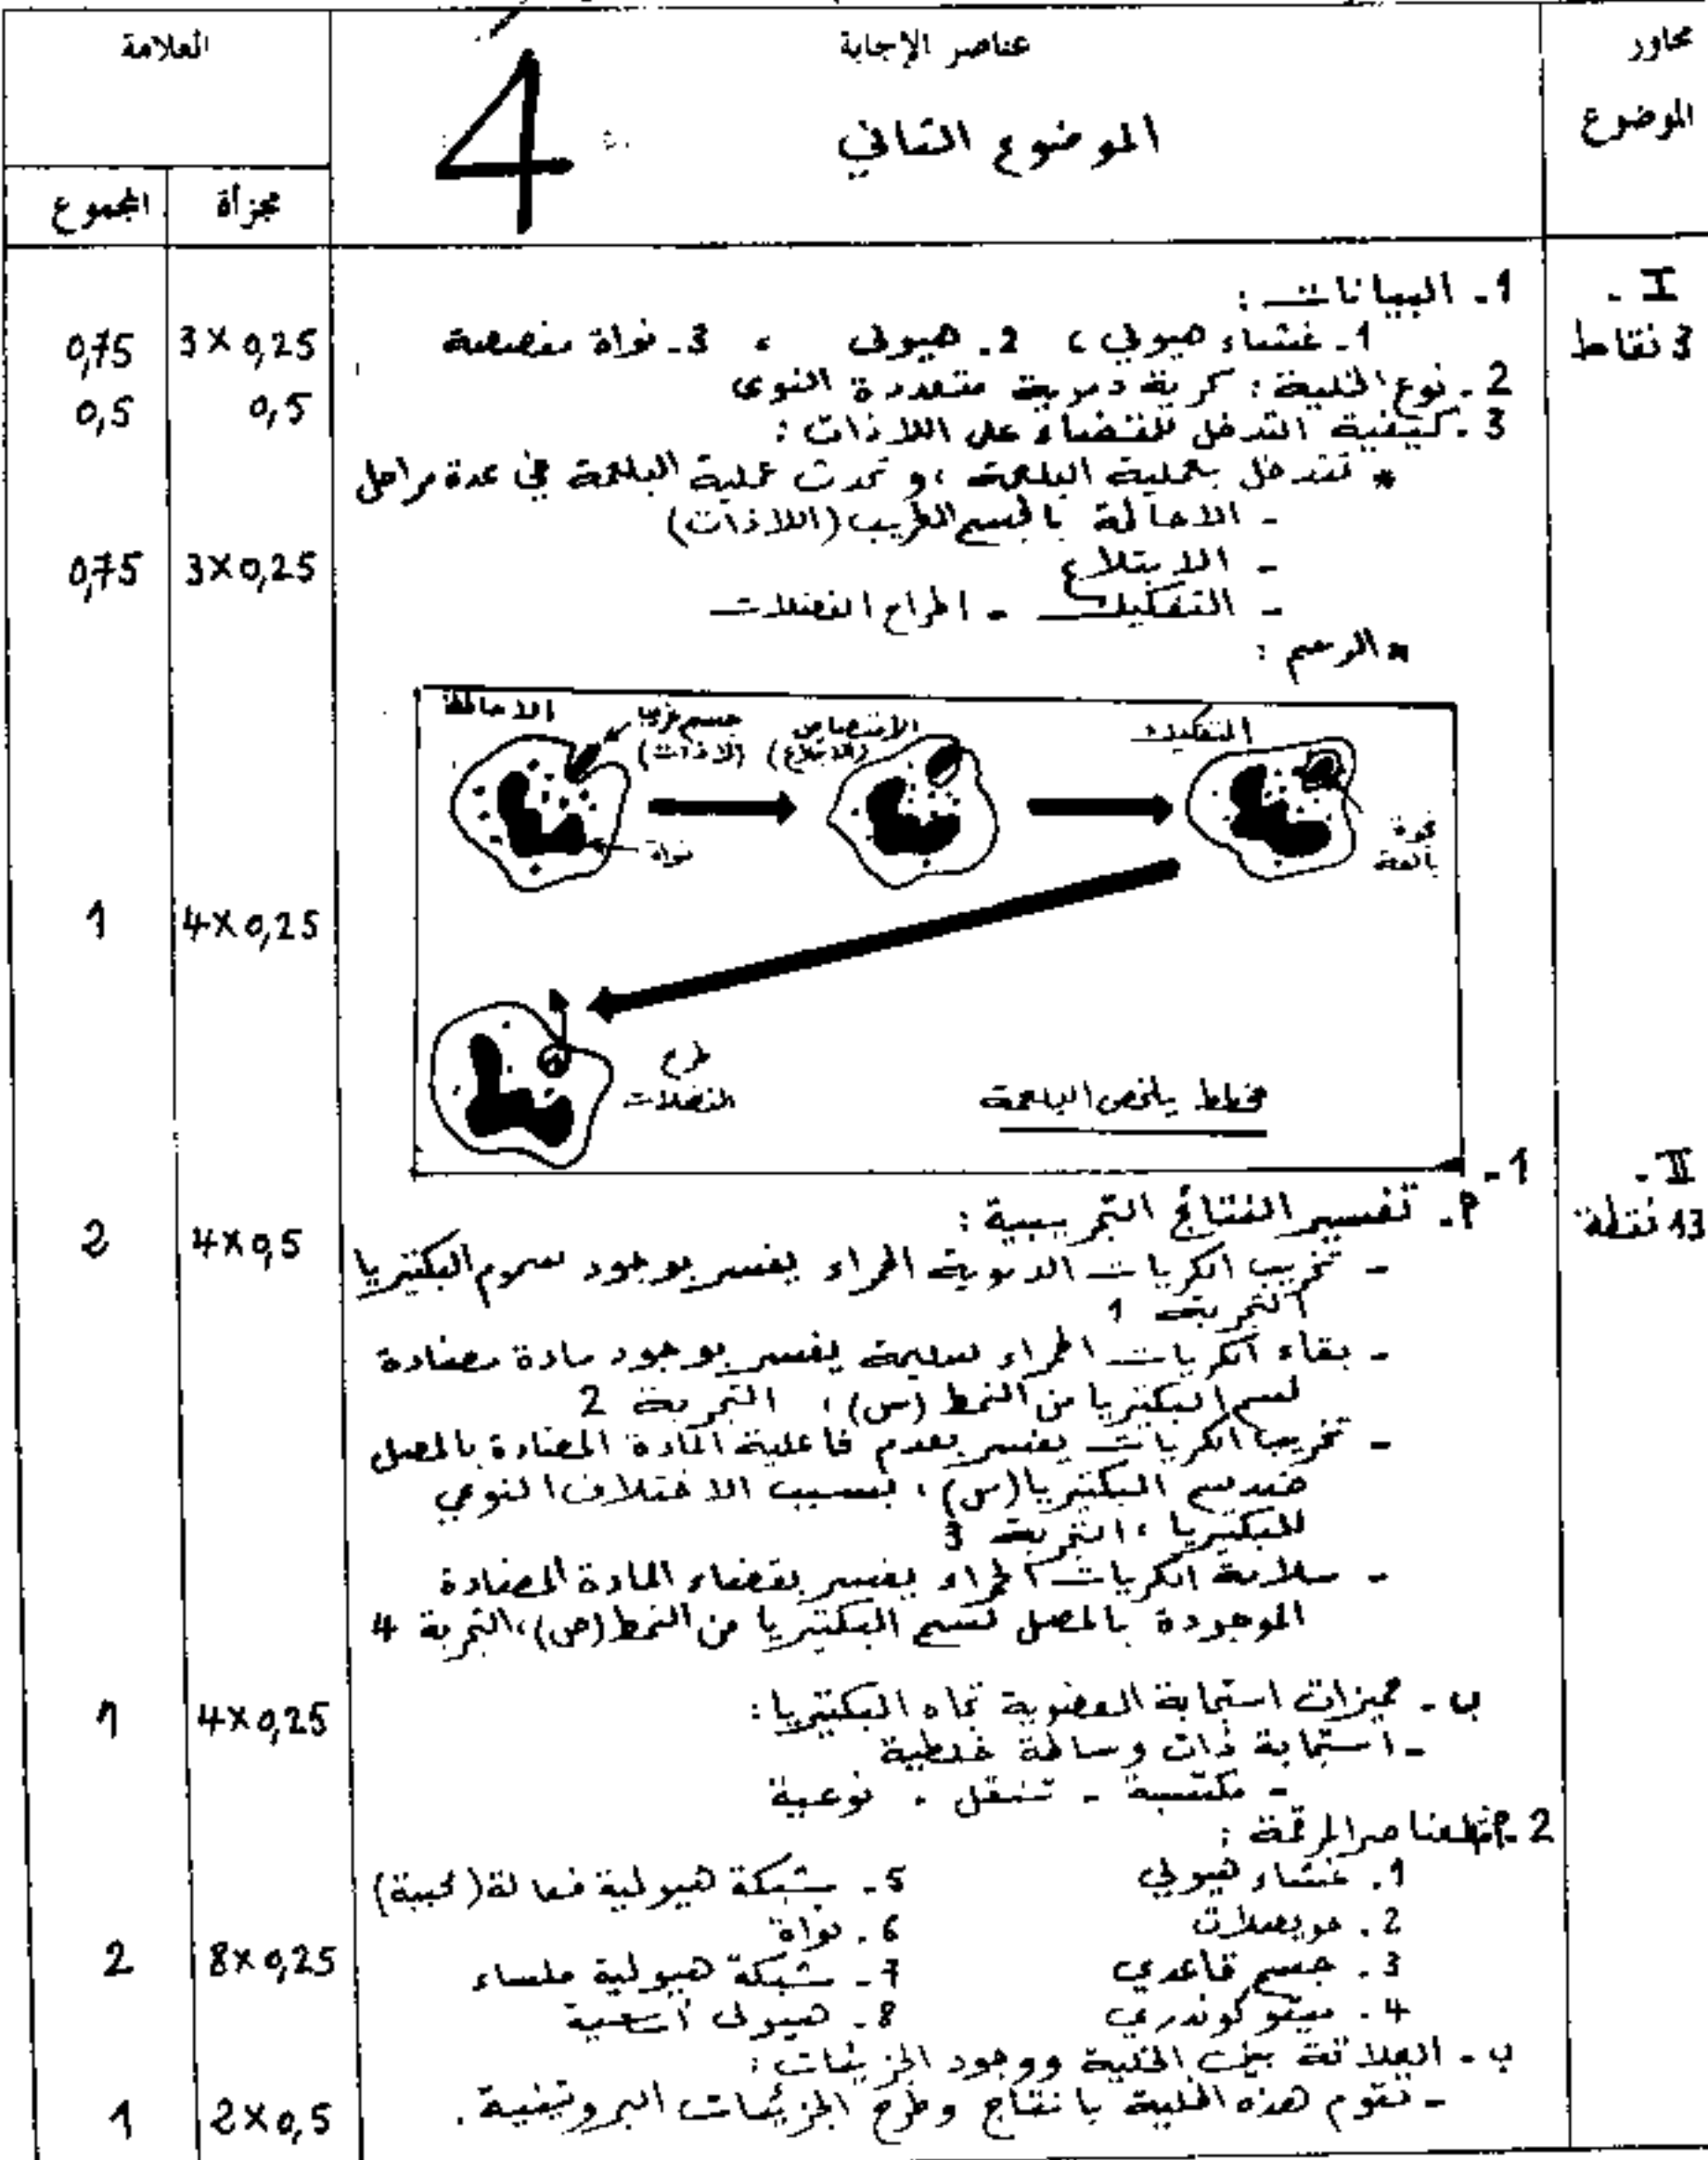 محاور
الموضوع
عناصر الإجابة
العلامة
4
الموضوع الثاني
مجزأة
المجموع
I -
3 نقاط
1- البيانات :
1- غشاء هيولي ، 2- هيولى ، 3- نواة مفصصة
3×0,25
0,75
2- نوع الخلية : كرية دموية متعددة النوى
0,5
0,5
3- كيفية التدخل للقضاء على اللاذات :
* تتدخل بعملية البلعمة ، و تحدث عملية البلعمة في عدة مراحل
- الاحاطة بالجسم الغريب (اللاذات)
- الابتلاع
3×0,25
0,75
- التفكيك - اطراح الفضلات
* الرسم :
الاحاطة
جسم غريب
(اللاذات)
الامتصاص
(الابتلاع)
التفكيك
نواة
فجوة
بالعة
4×0,25
1
طرح
الفضلات
مخطط يلخص البلعمة
II -
13 نقطة
1-
أ- تفسير النتائج التجريبية :
4×0,5
2
- تخريب الكريات الدموية الحمراء يفسر بوجود سموم البكتيريا
التجربة 1
- بقاء الكريات الحمراء سليمة يفسر بوجود مادة مضادة
لسم البكتيريا من النمط (س) ، التجربة 2
- تخريب الكريات يفسر بعدم فاعلية المادة المضادة بالمصل
ضد سم البكتيريا (س) ، بسبب الاختلاف النوعي
للبكتيريا ، التجربة 3
- سلامة الكريات الحمراء يفسر بقضاء المادة المضادة
الموجودة بالمصل لسم البكتيريا من النمط (ص) ، التجربة 4
ب- مميزات استجابة العضوية تجاه البكتيريا :
4×0,25
1
- استجابة ذات وساطة خلطية
- مكتسبة - تنتقل - نوعية
2- أ- العناصر المرقمة :
1- غشاء هيولي
5- شبكة هيولية فعالة (محببة)
2- حويصلات
6- نواة
3- جسم قاعدي
7- شبكة هيولية ملساء
8×0,25
2
4- ميتوكوندري
8- هيولى أساسية
ب- العلاقة بين الخلية ووجود الجزيئات :
- تقوم هذه الخلية بانتاج وطرح الجزيئات البروتينية .
2×0,5
1